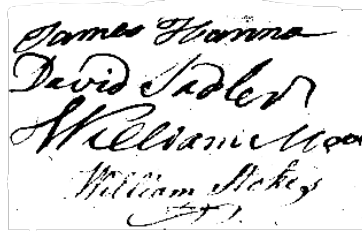 James Hanna
David Sadler
William Moo
William Stokes